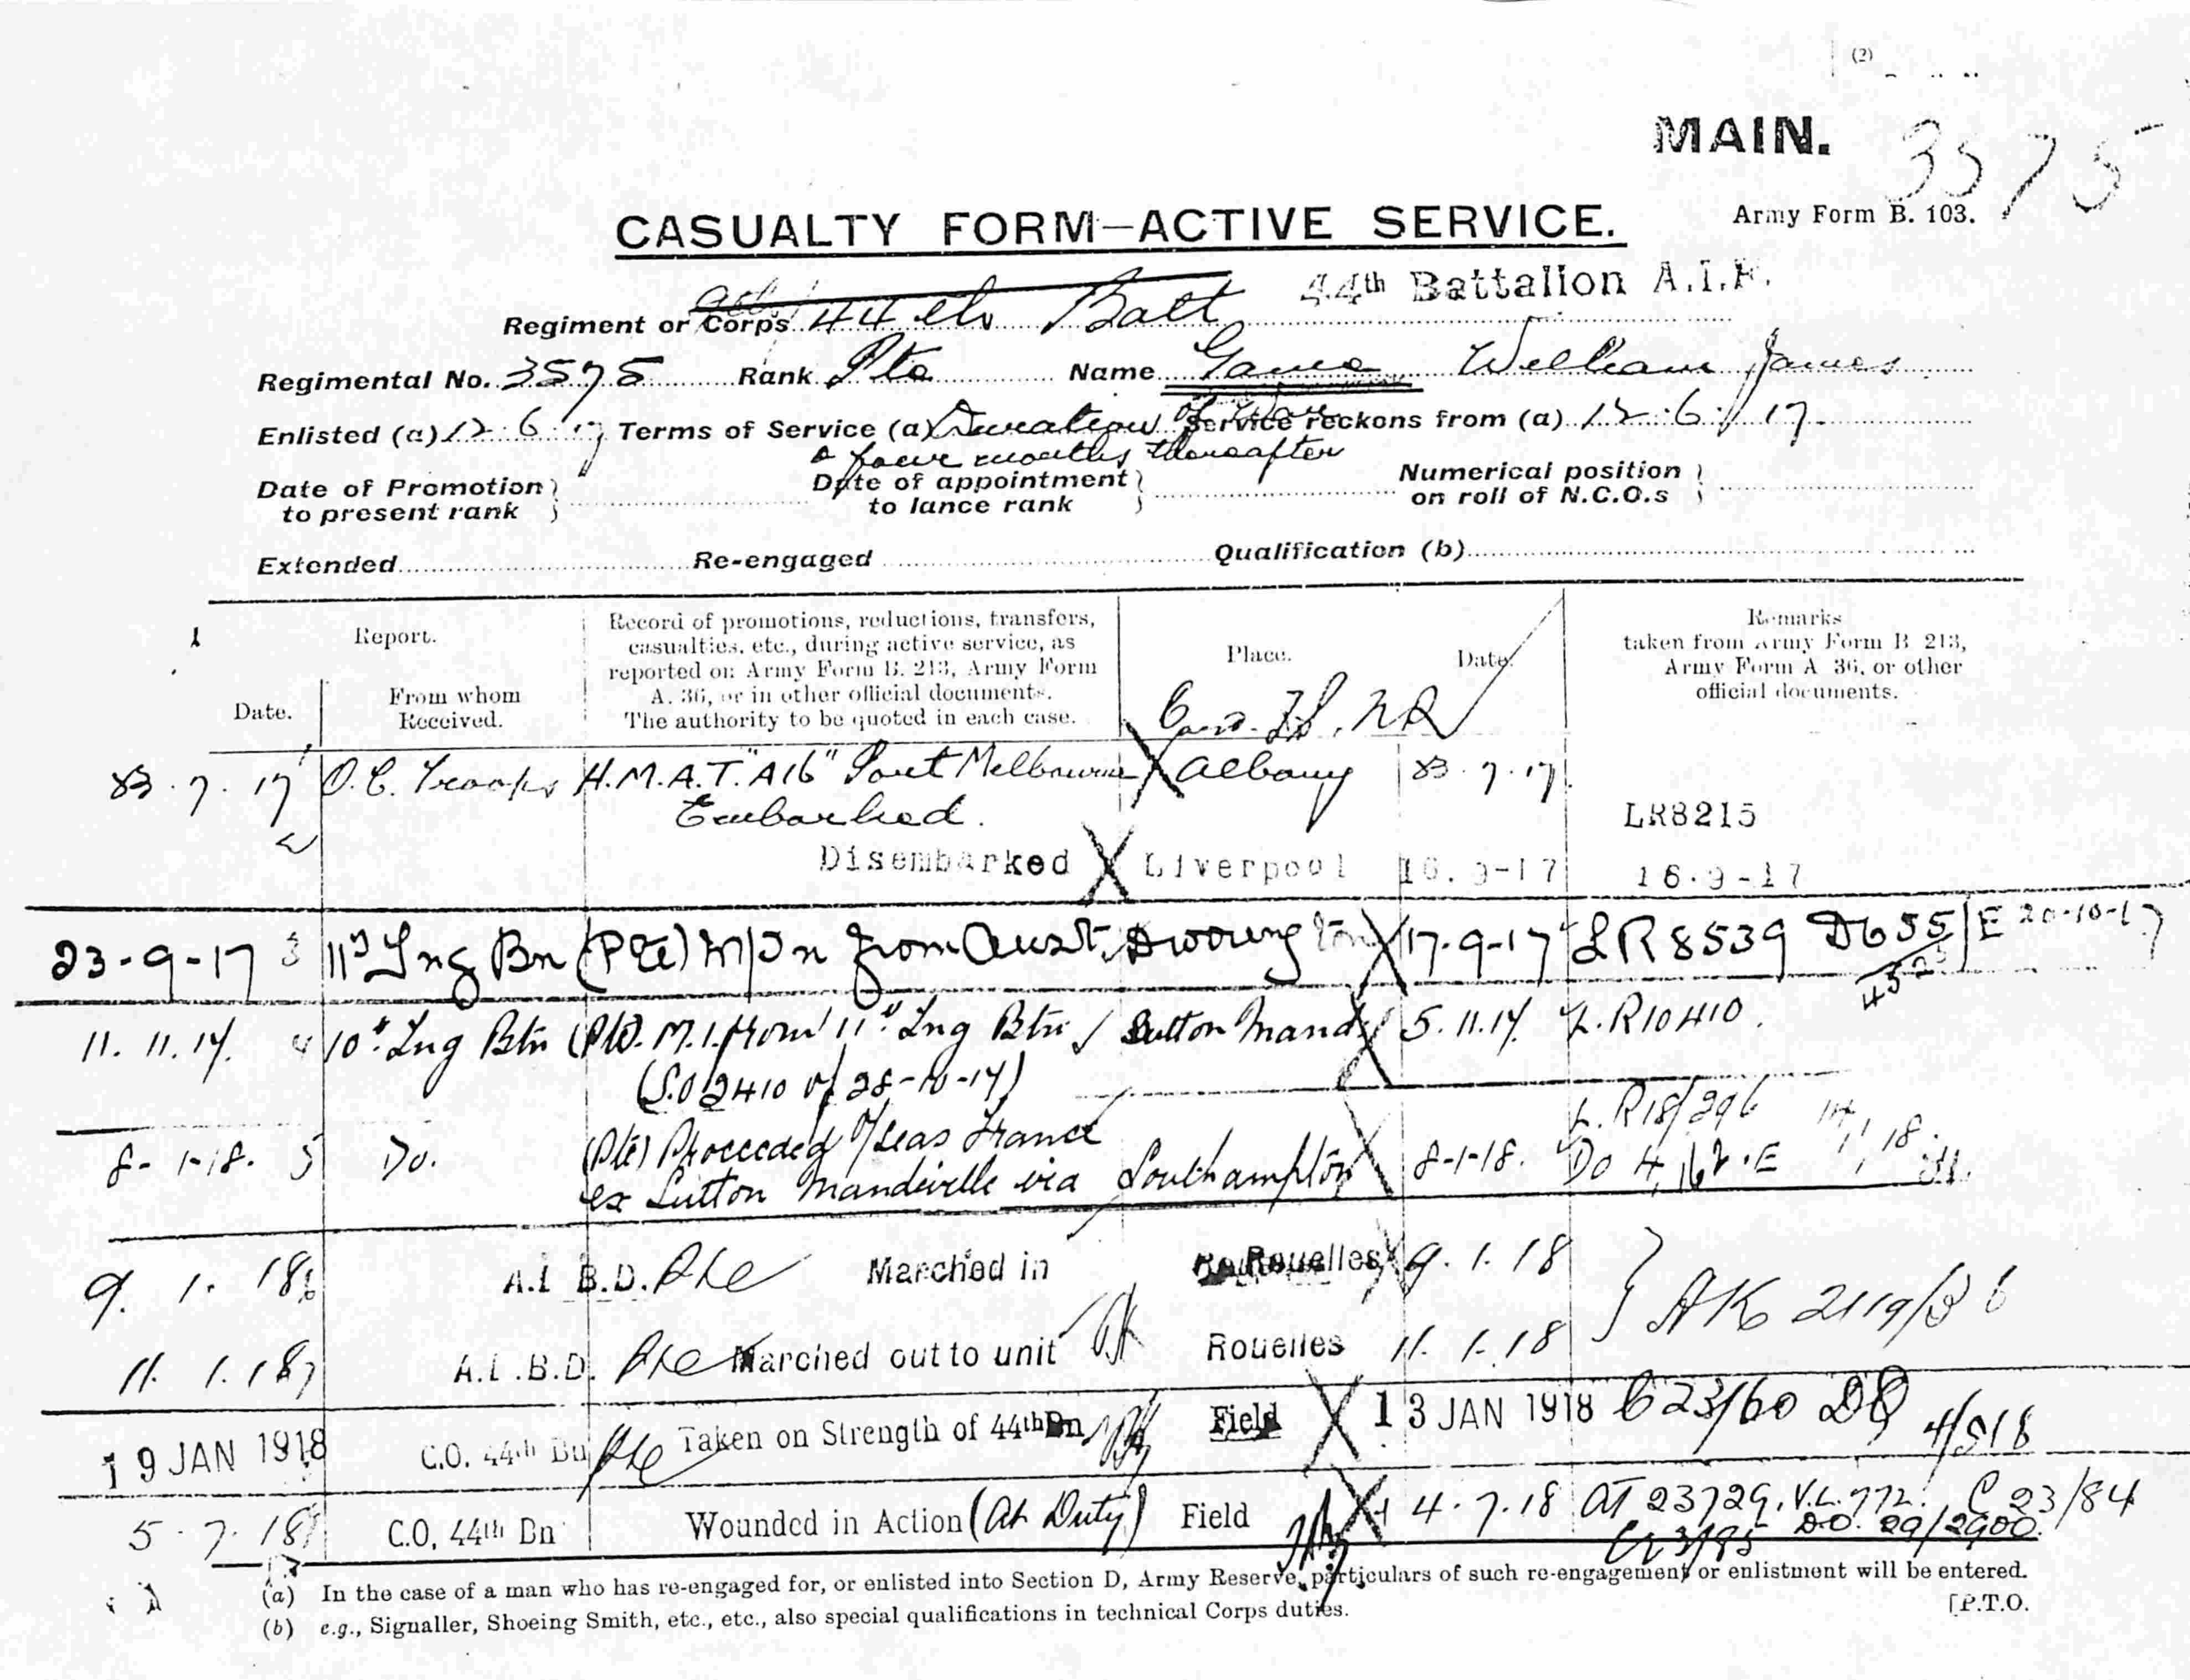 (2)
MAIN. 3575
CASUALTY FORM—ACTIVE SERVICE. Army Form B. 103.
Regiment or Corps 44th Batt 44th Battalion A.I.F.
Regimental No. 3575 Rank Pte Name William James
Enlisted (a) 12.6.17 Terms of Service (a) Duration of War Service reckons from (a) 12.6.17
& four months thereafter
Date of Promotion to present rank Date of appointment to lance rank Numerical position on roll of N.C.O.s
Extended Re-engaged Qualification (b)
Report. Record of promotions, reductions, transfers, casualties, etc., during active service, as reported on Army Form B. 213, Army Form A. 36, or in other official documents. The authority to be quoted in each case. Place. Date. Remarks taken from Army Form B 213, Army Form A 36, or other official documents.
Date. From whom Received.
23.7.17 O.C. Troops H.M.A.T. "A16" Port Melbourne Albany 23.7.17
Embarked. LR8215
Disembarked Liverpool 16.9-17 16.9-17
23-9-17 3 11th Tng Bn (Pte) M/In from Aust. 17-9-17 LR 8539 D655/E 20-10-17
11.11.17. 4 10th Tng Btn (Pte). M.I. from 11th Tng Btn Sutton Mand 5.11.17. L.R10410.
(S.O 2410 of 28-10-17)
8-1-18. 5 Do. (Pte) Proceeded O/seas France L.R18/296
ex Sutton Mandeville via Southampton 8-1-18. Do 4
9.1.18 6 A.I B.D. Pte Marched in Rouelles 9.1.18
AK 2119/36
11.1.18 7 A.I.B.D. Pte Marched out to unit Rouelles 11.1.18
19 JAN 1918 C.O. 44th Bn Pte Taken on Strength of 44th Bn Field 13 JAN 1918 C23/60 DO 4/518
5.7.18 C.O, 44th Bn Wounded in Action (At Duty) Field 4.7.18 AT 23729. V.L. 772. C 23/84
D.O. 29/2900
(a) In the case of a man who has re-engaged for, or enlisted into Section D, Army Reserve, particulars of such re-engagement or enlistment will be entered.
(b) e.g., Signaller, Shoeing Smith, etc., etc., also special qualifications in technical Corps duties. [P.T.O.